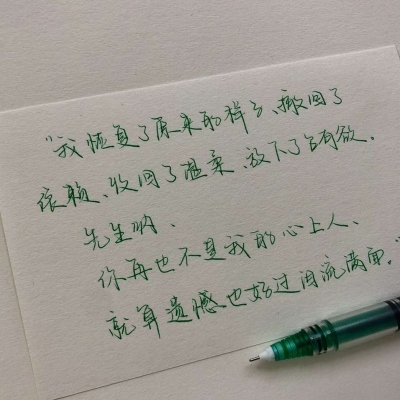 “我恢复了原来的样子、撤回了
依赖、收回了温柔、放下了占有欲.
先生呐、
你再也不是我的心上人、
就算遗憾、也好过泪流满面.”